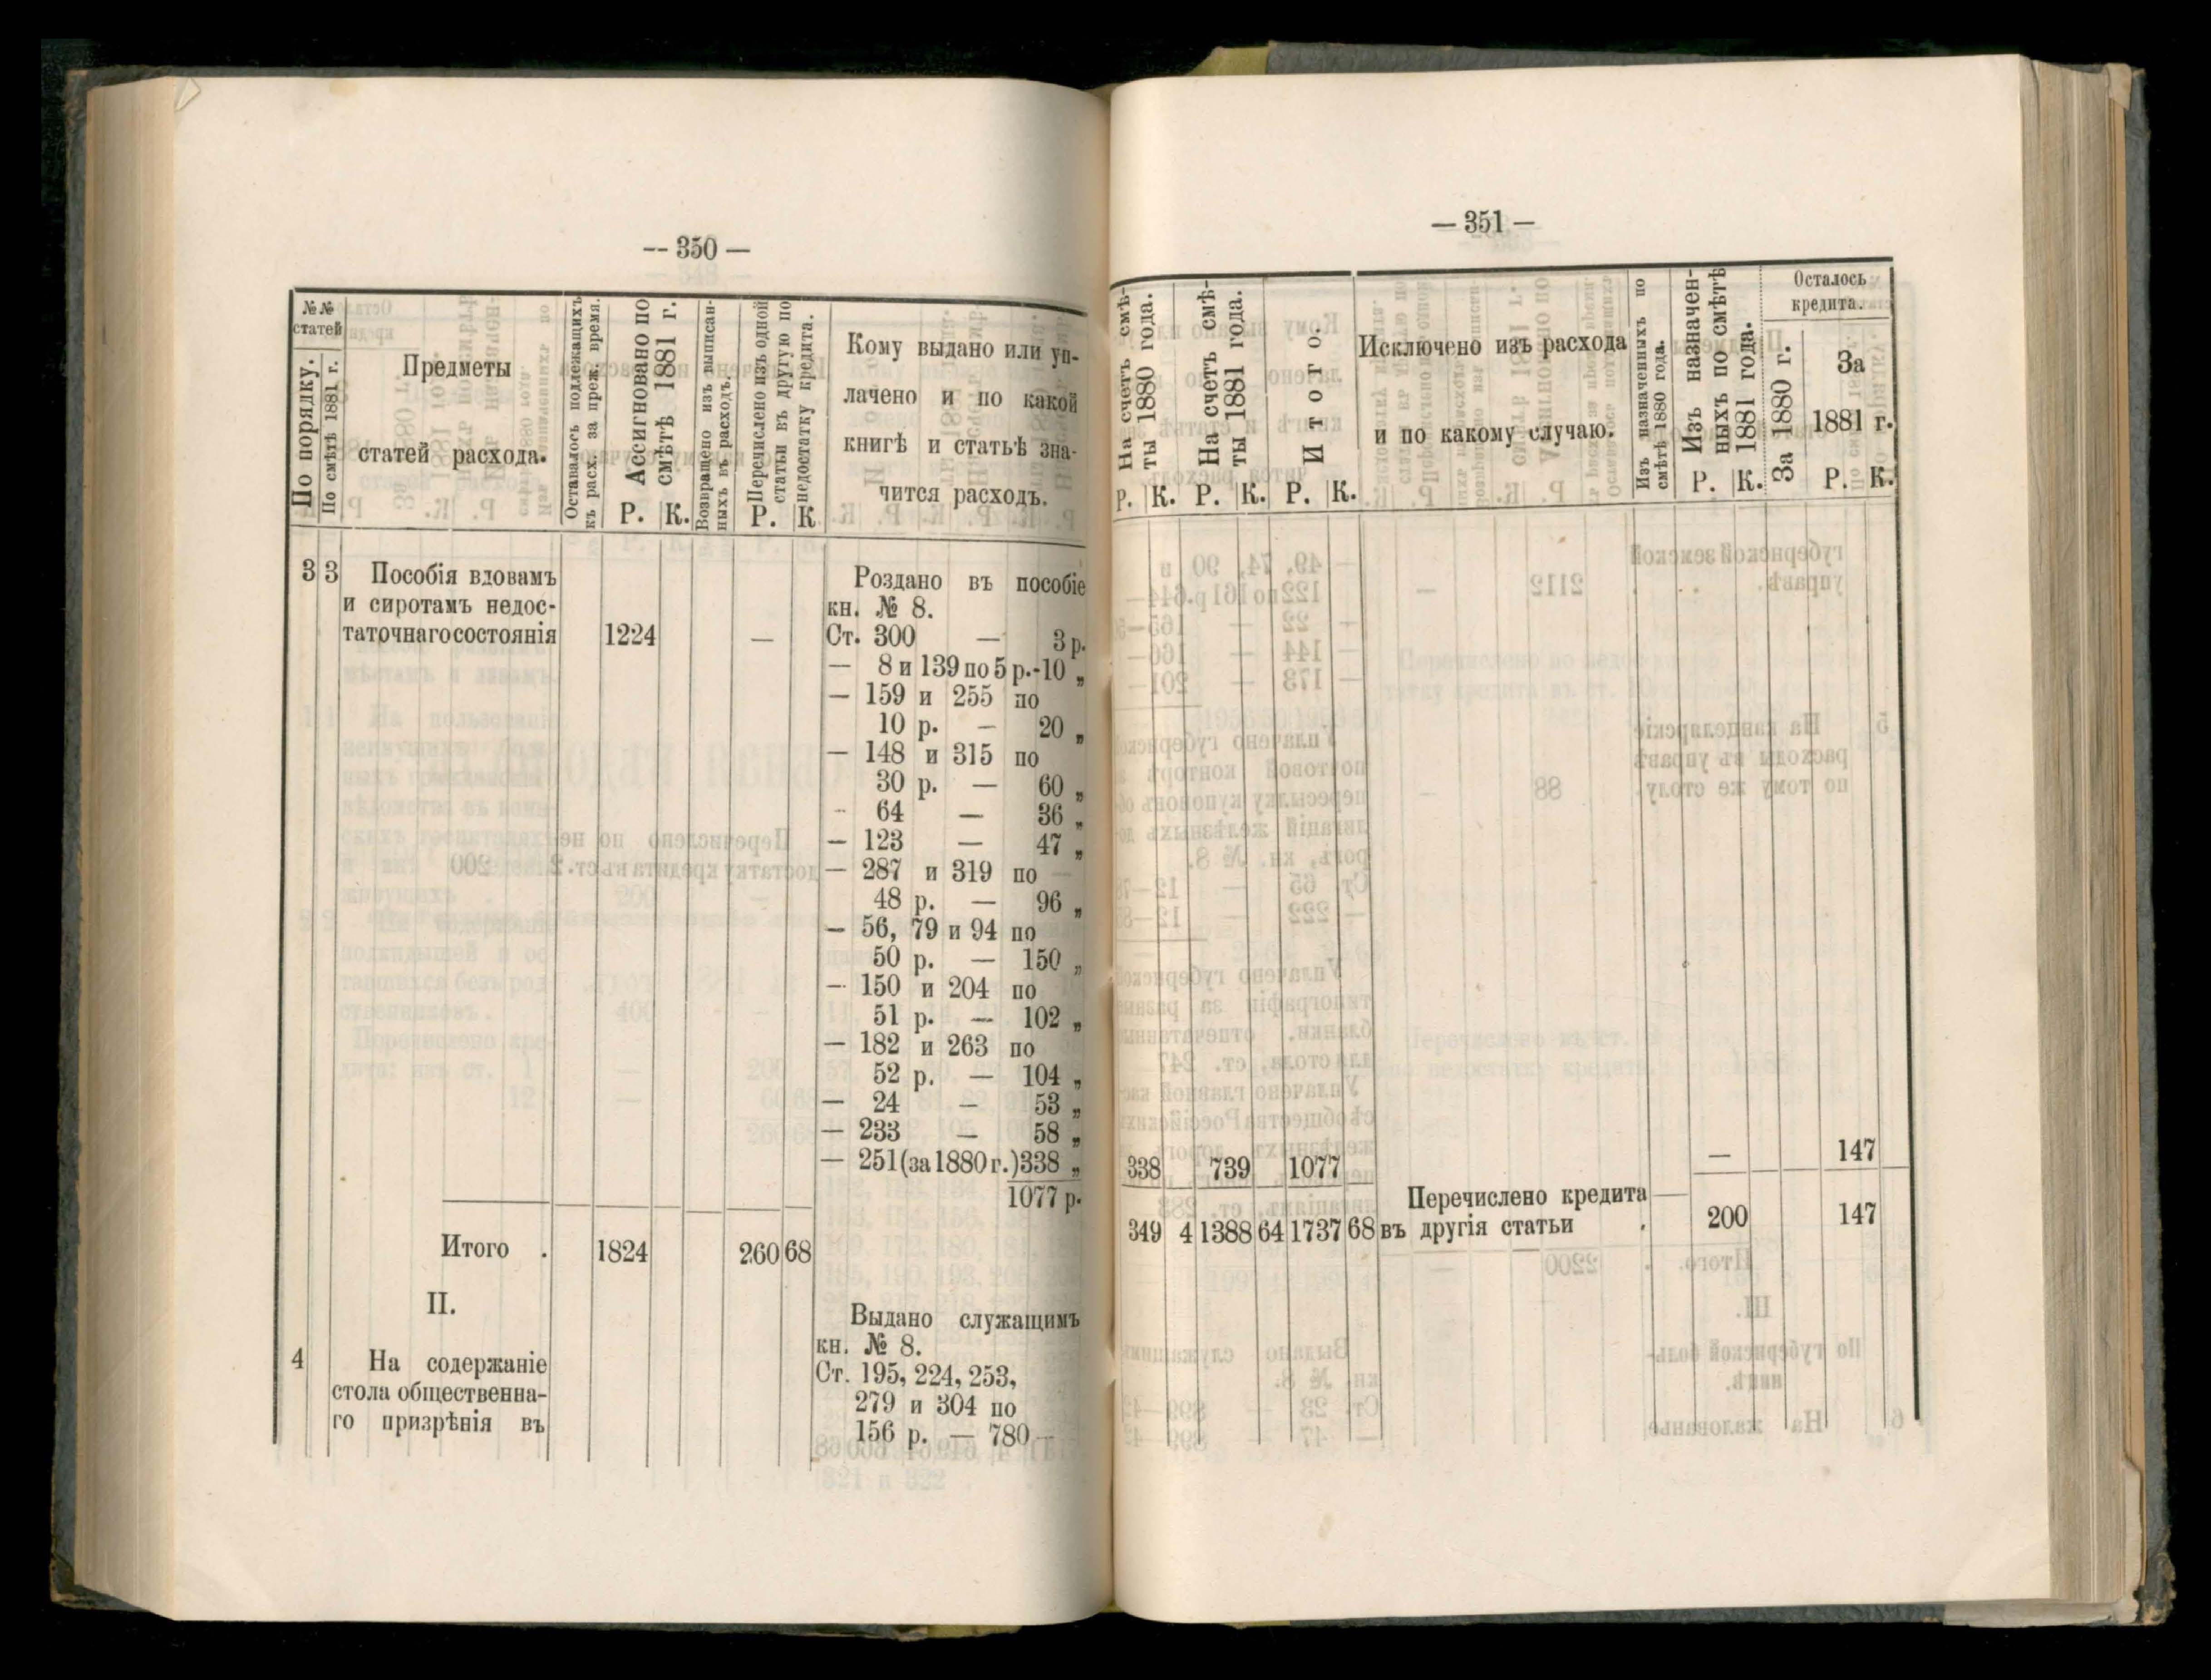 -- 350 —
№№
статей
По порядку.
По смѣтѣ 1881 г.
Предметы
статей расхода.
Оставалось подлежащихъ
къ расх. за преж. время.
Ассигновано по
смѣтѣ 1881 г.
Р. К.
Возвращено изъ выписан-
ныхъ въ расходъ.
Перечислено изъ одной
статьи въ другую по
недостатку кредита.
Р. К
Кому выдано или уп-
лачено и по какой
книгѣ и статьѣ зна-
чится расходъ.
3 3 Пособія вдовамъ
и сиротамъ недос-
таточнаго состоянія 1224 —
Роздано въ пособіе
кн. № 8.
Ст. 300 — 3 р.
— 8 и 139 по 5 р.-10 „
— 159 и 255 по
10 р. — 20 „
— 148 и 315 по
30 р. — 60 „
- 64 — 36 „
— 123 — 47 „
— 287 и 319 по
48 р. — 96 „
— 56, 79 и 94 по
50 р. — 150 „
— 150 и 204 по
51 р. — 102 „
— 182 и 263 по
52 р. — 104 „
— 24 — 53 „
— 233 — 58 „
— 251 (за 1880 г.) 338 „
1077 р.
Итого . 1824 260 68
II.
4 На содержаніе
стола общественна-
го призрѣнія въ
Выдано служащимъ
кн. № 8.
Ст. 195, 224, 253,
279 и 304 по
156 р. — 780 —
— 351 —
На счетъ смѣ-
ты 1880 года.
Р. К.
На счетъ смѣ-
ты 1881 года.
Р. К.
Итого.
Р. К.
Исключено изъ расхода
и по какому случаю.
Изъ назначенныхъ по
смѣтѣ 1880 года.
Изъ назначен-
ныхъ по смѣтѣ
1881 года.
Р. К.
Осталось
кредита.
За 1880 г.
За
1881 г.
Р. К.
338 739 1077 — 147
Перечислено кредита —
349 4 1388 64 1737 68 въ другія статьи . 200 147